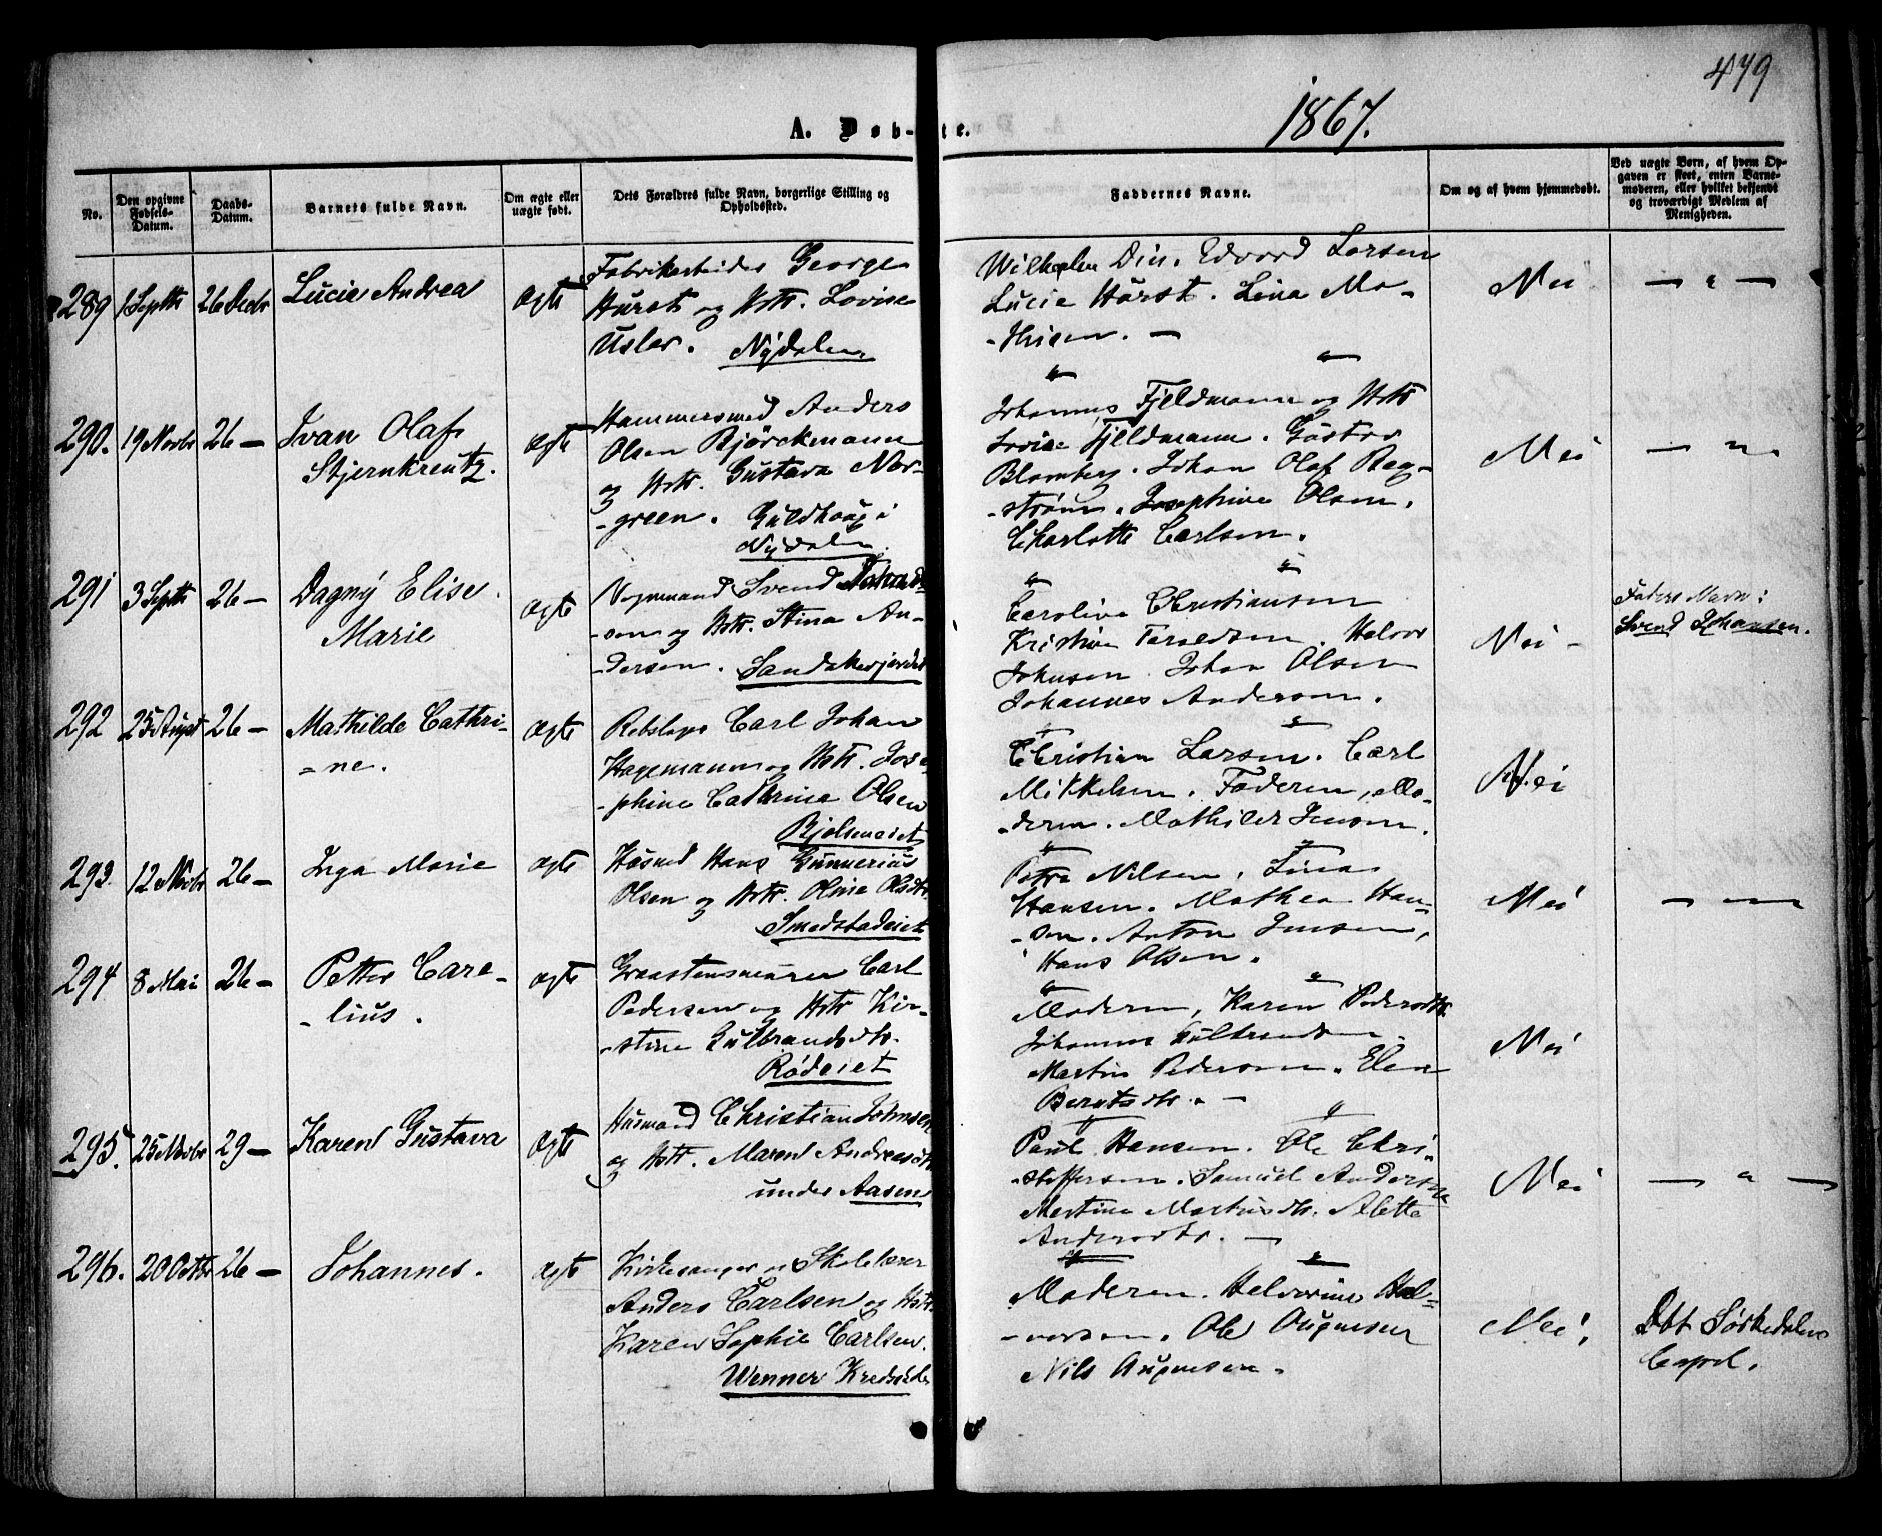 479
1867.
A. Døb-te.
No.
Den opgivne Fødsels-Datum.
Daabs-Datum.
Barnets fulde Navn.
Om ægte eller uægte født.
Dets Forældres fulde Navn, borgerlige Stilling og Opholdssted.
Faddernes Navne.
Om og af hvem hjemmedøbt.
Ved uægte Børn, af hvem Opgaven er skeet, enten Barnemoderen, eller hvilket bekjendt og troværdigt Medlem af Menigheden.
289 1 Septb 26 Decbr Lucie Andrea Ægte
Fabrikarbeider George
Hurst og Hstr. Lovise
Usler. Nydalen
Edvard Larsen
Lucie Hurst. Lina Ma-
-thisen. —
Nei — " —
290. 19 Novbr 26 — Ivan Olaf
Stjernkreutz. Ægte
Hammersmed Anders
Olsen Bjørckmann
og Hstr. Gustava Nor-
-green. Guldhaug i
Nydalen.
Johannes Fjeldmann og Hstr
Lovise Fjeldmann. Gustav
Blomberg. Johan Olaf Beg-
-strøm. Josephine Olsen.
Charlotte Carlsen.
Nei — "
291 3 Septb 26 — Dagny Elise
Marie Ægte
Svend
-sen og Hstr. Stina An-
-dersen. Sandakerjordet
Caroline Christiansen
Kristine Taraldsen. Halvor
Johnsen. Johan Olsen
Johannes Andersen.
Nei -
Faders Navn:
Svend Johansen.
292 25 August 26 — Mathilde Cathri-
-ne. Ægte
Rebslager Carl Johan
Hagemann og Hstr. Jose-
-phine Cathrine Olsen
Bjølseneiet
Christian Larsen. Carl
Mikkelsen. Faderen, Mo-
-deren. Mathilde Jensen.
Nei
293. 12 Novbr 26 — Inga Marie Ægte
Husmd Hans Gunnerius
Olsen og Hstr. Oline Olsdtr.
Smedstadeiet
Petra Nilsen. Lina
Hansen. Mathea Han-
-sen. Anton Jensen,
Hans Olsen.
Nei — "
294 8 Mai 26 — Petter Care-
-lius. Ægte
Graastensmurer Carl
Pedersen og Hstr Kir-
-stine Gulbrandsdtr.
Rødeiet
Moderen, Karen Pedersdtr.
Johannes Gulbrandsen.
Martin Pedersen. Elen
Berntsdtr. —
Nei
295. 25 Novbr 29 — Karen Gustava Ægte
Husmand Christian Johnsen
og Hstr. Maren Andreasdtr
under Aasen
Paul Hansen. Ole Chri-
-stoffersen. Samuel Andersen
Martine Martinsdtr. Alette
Andersdtr. —
Nei — " —
296. 20 Octbr 26 — Johannes. Ægte
Kirkesanger og Skolelærer
Anders Carlsen og Hstr.
Karen Sophie Carlsen.
Wenner Kredsskole
Moderen. Helverine Hal-
-vorsen. Ole Augensen
Nils Augensen.
Nei.
Dbt Sørkedalens
Capel.